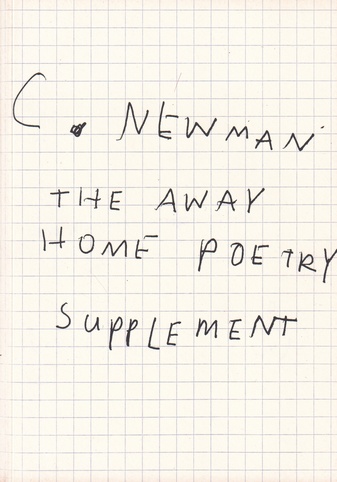 C. NEWMAN
THE AWAY
HOME POETRY
SUPPLEMENT